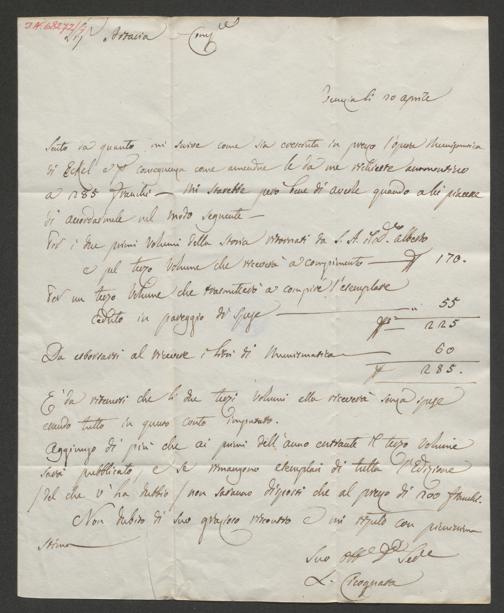 Sig.r Artaria Comp.
Venezia li 20 aprile
Sento da quanto mi scrive come sia cresciuta in prezzo l'opera Numismatica
di Eckel e per conseguenza come amendue le da me richieste aumentino
a 285 franchi — Mi sarebbe però bene di averle quando a lei piacesse
di accordarmele nel modo seguente —
Per i due primi volumi della Storia ritornati da S. A. il D. Alberto
e pel terzo volume che riceverà a compimento — 170.
Per un terzo volume che trasmetterò a compire l'esemplare
Ceduto in pareggio di spese — 55
225
Da esborsarsi al ricevere i libri di Numismatica — 60
285.
E da ritenersi che li due terzi volumi ella riceverà senza spese
essendo tutto in questo conto
Aggiungo di più che ai primi dell'anno entrante il terzo volume
sarà pubblicato, e se rimangono esemplari di tutta l'Edizione
/ del che v'ha dubbio / non saranno disposti che al prezzo di 200 franchi.
Non dubito di suo grazioso riscontro e mi con pienissima
stima
Suo
L. Cicognara